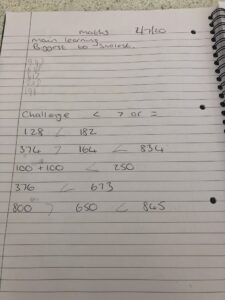 maths 2/7/20
main learning
Biggest to smallest.
Challenge < > or =
128 < 182
374 > 164 < 834
100 + 100 < 250
376 < 673
800 > 650 < 845